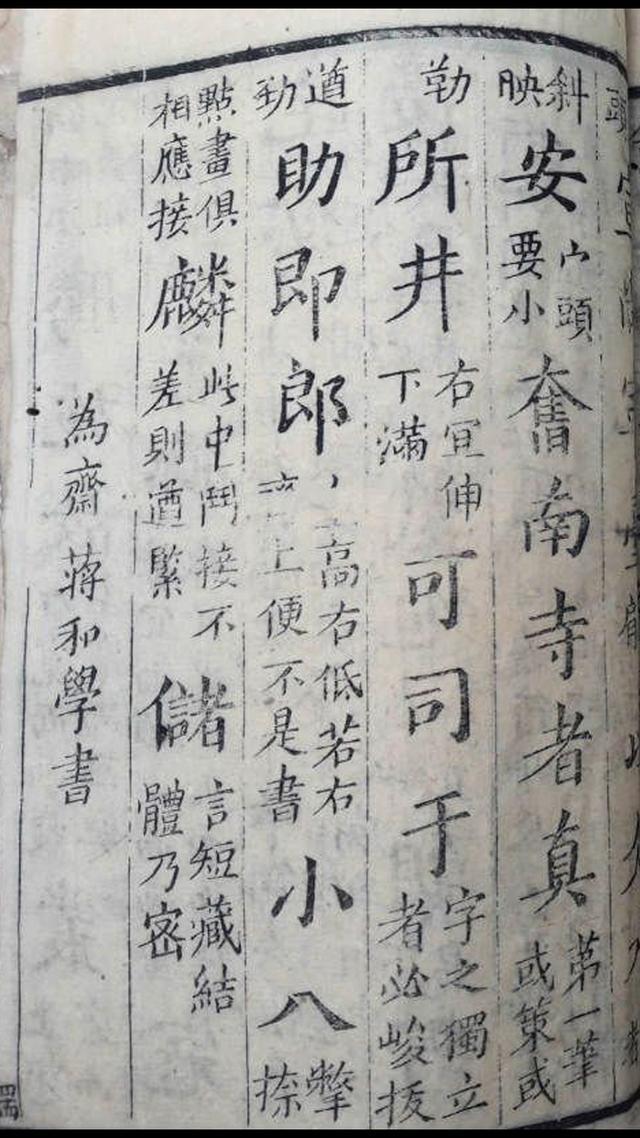 頭
斜映安宀頭要小奮南寺者真第一筆或策或
勒所井右冝伸下滿可司于字之獨立者必峻拔
遒勁助即郎高右低若右上便不是書小八撇捺
點畫俱相應接麟此中鬥接不差則遒緊儲言短藏結體乃密
為齋蔣和學書